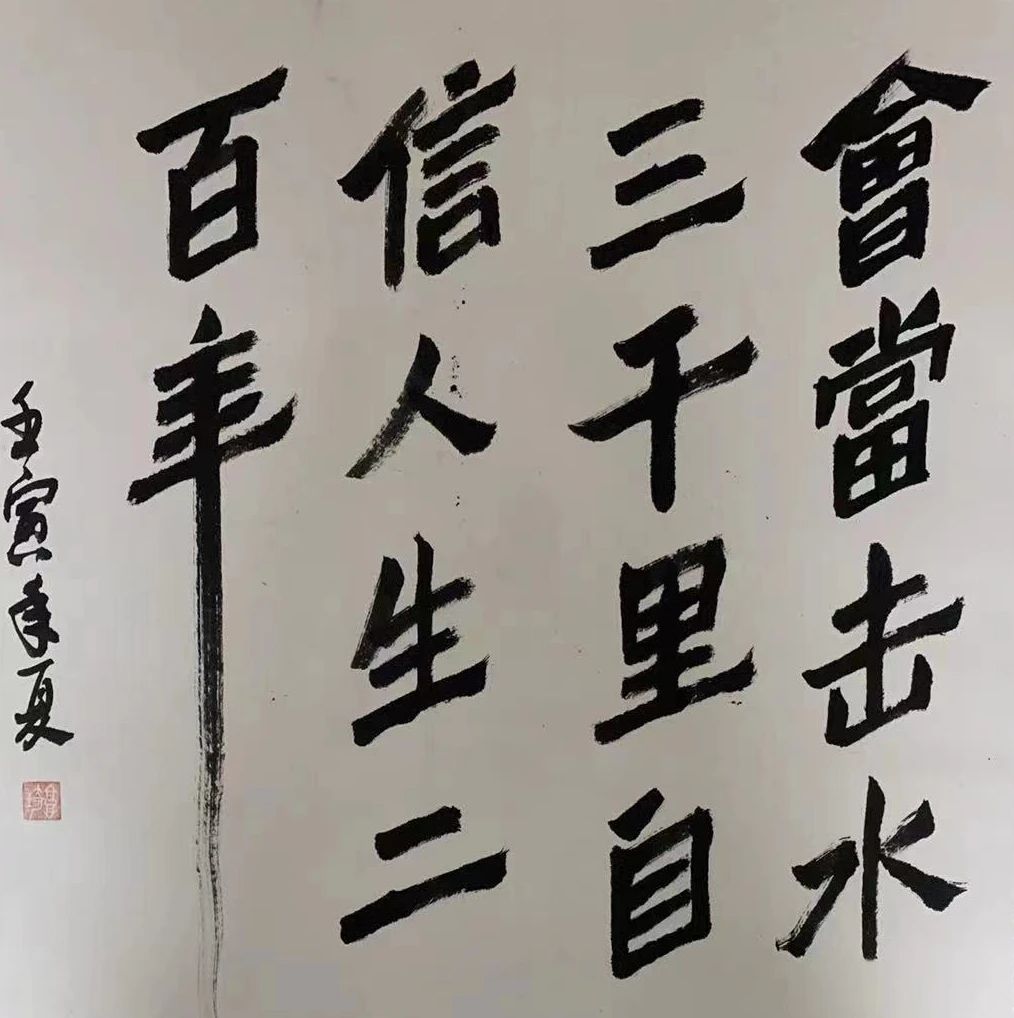 會當击水
三千里自
信人生二
百年
壬寅年夏